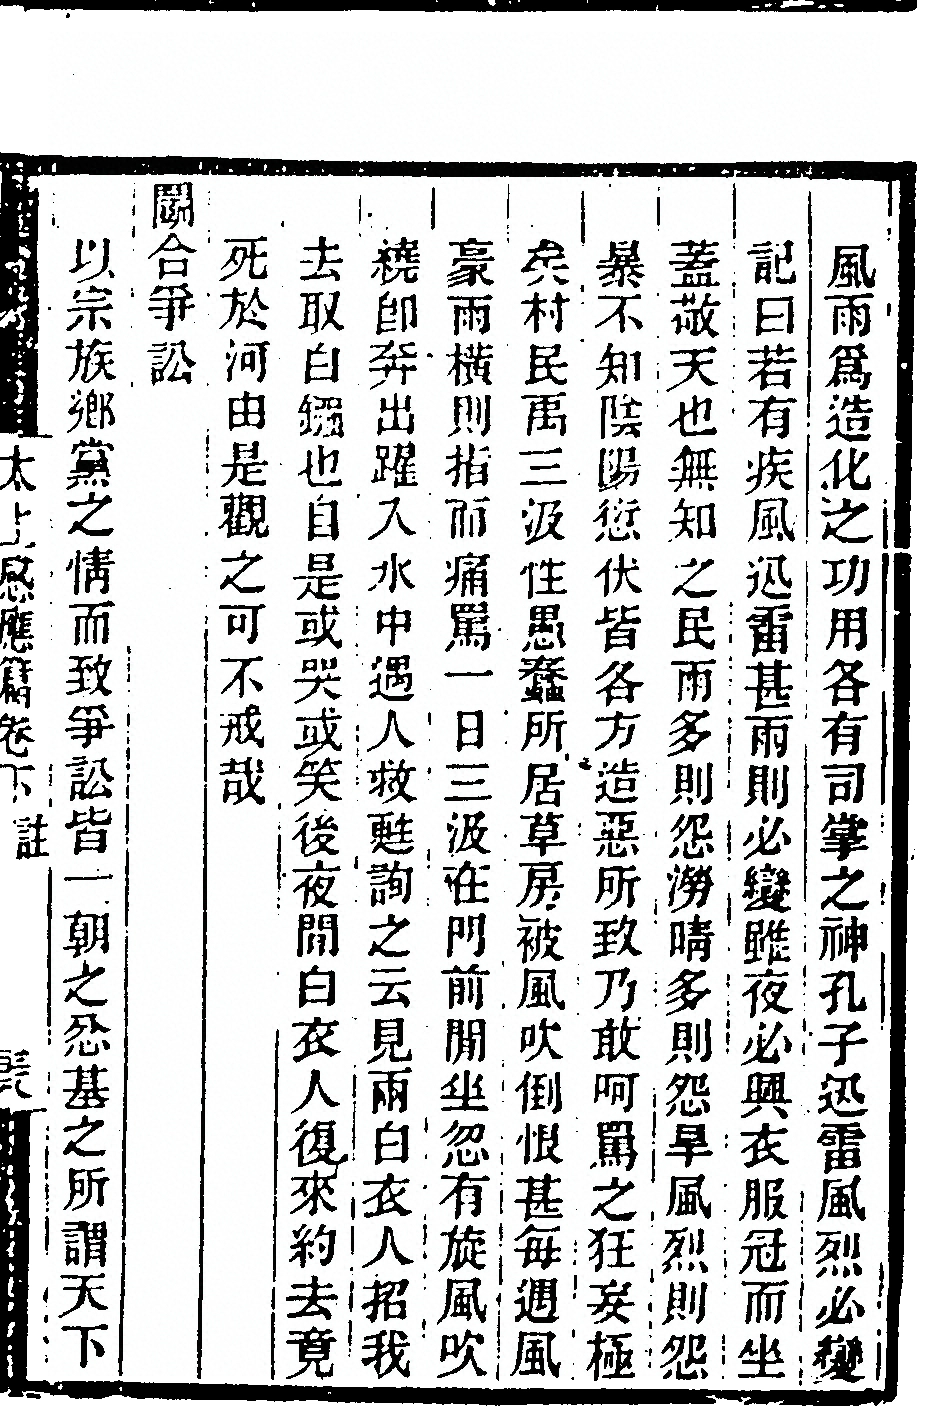 風雨爲造化之功用各有司掌之神孔子迅雷風烈必變
記曰若有疾風迅雷甚雨則必變雖夜必興衣服冠而坐
蓋敬天也無知之民雨多則怨澇晴多則怨旱風烈則怨
暴不知陰陽愆伏皆各方造惡所致乃敢呵罵之狂妄極
矣村民禹三汲性愚蠢所居草房被風吹倒恨甚每遇風
豪雨橫則指而痛罵一日三汲在門前閒坐忽有旋風吹
繞卽奔出躍入水中遇人救甦詢之云見兩白衣人招我
去取白鏹也自是或哭或笑後夜間白衣人復來約去竟
死於河由是觀之可不戒哉
鬭合爭訟
以宗族鄉黨之情而致爭訟皆一朝之忿基之所謂天下
太上感應篇卷下 註